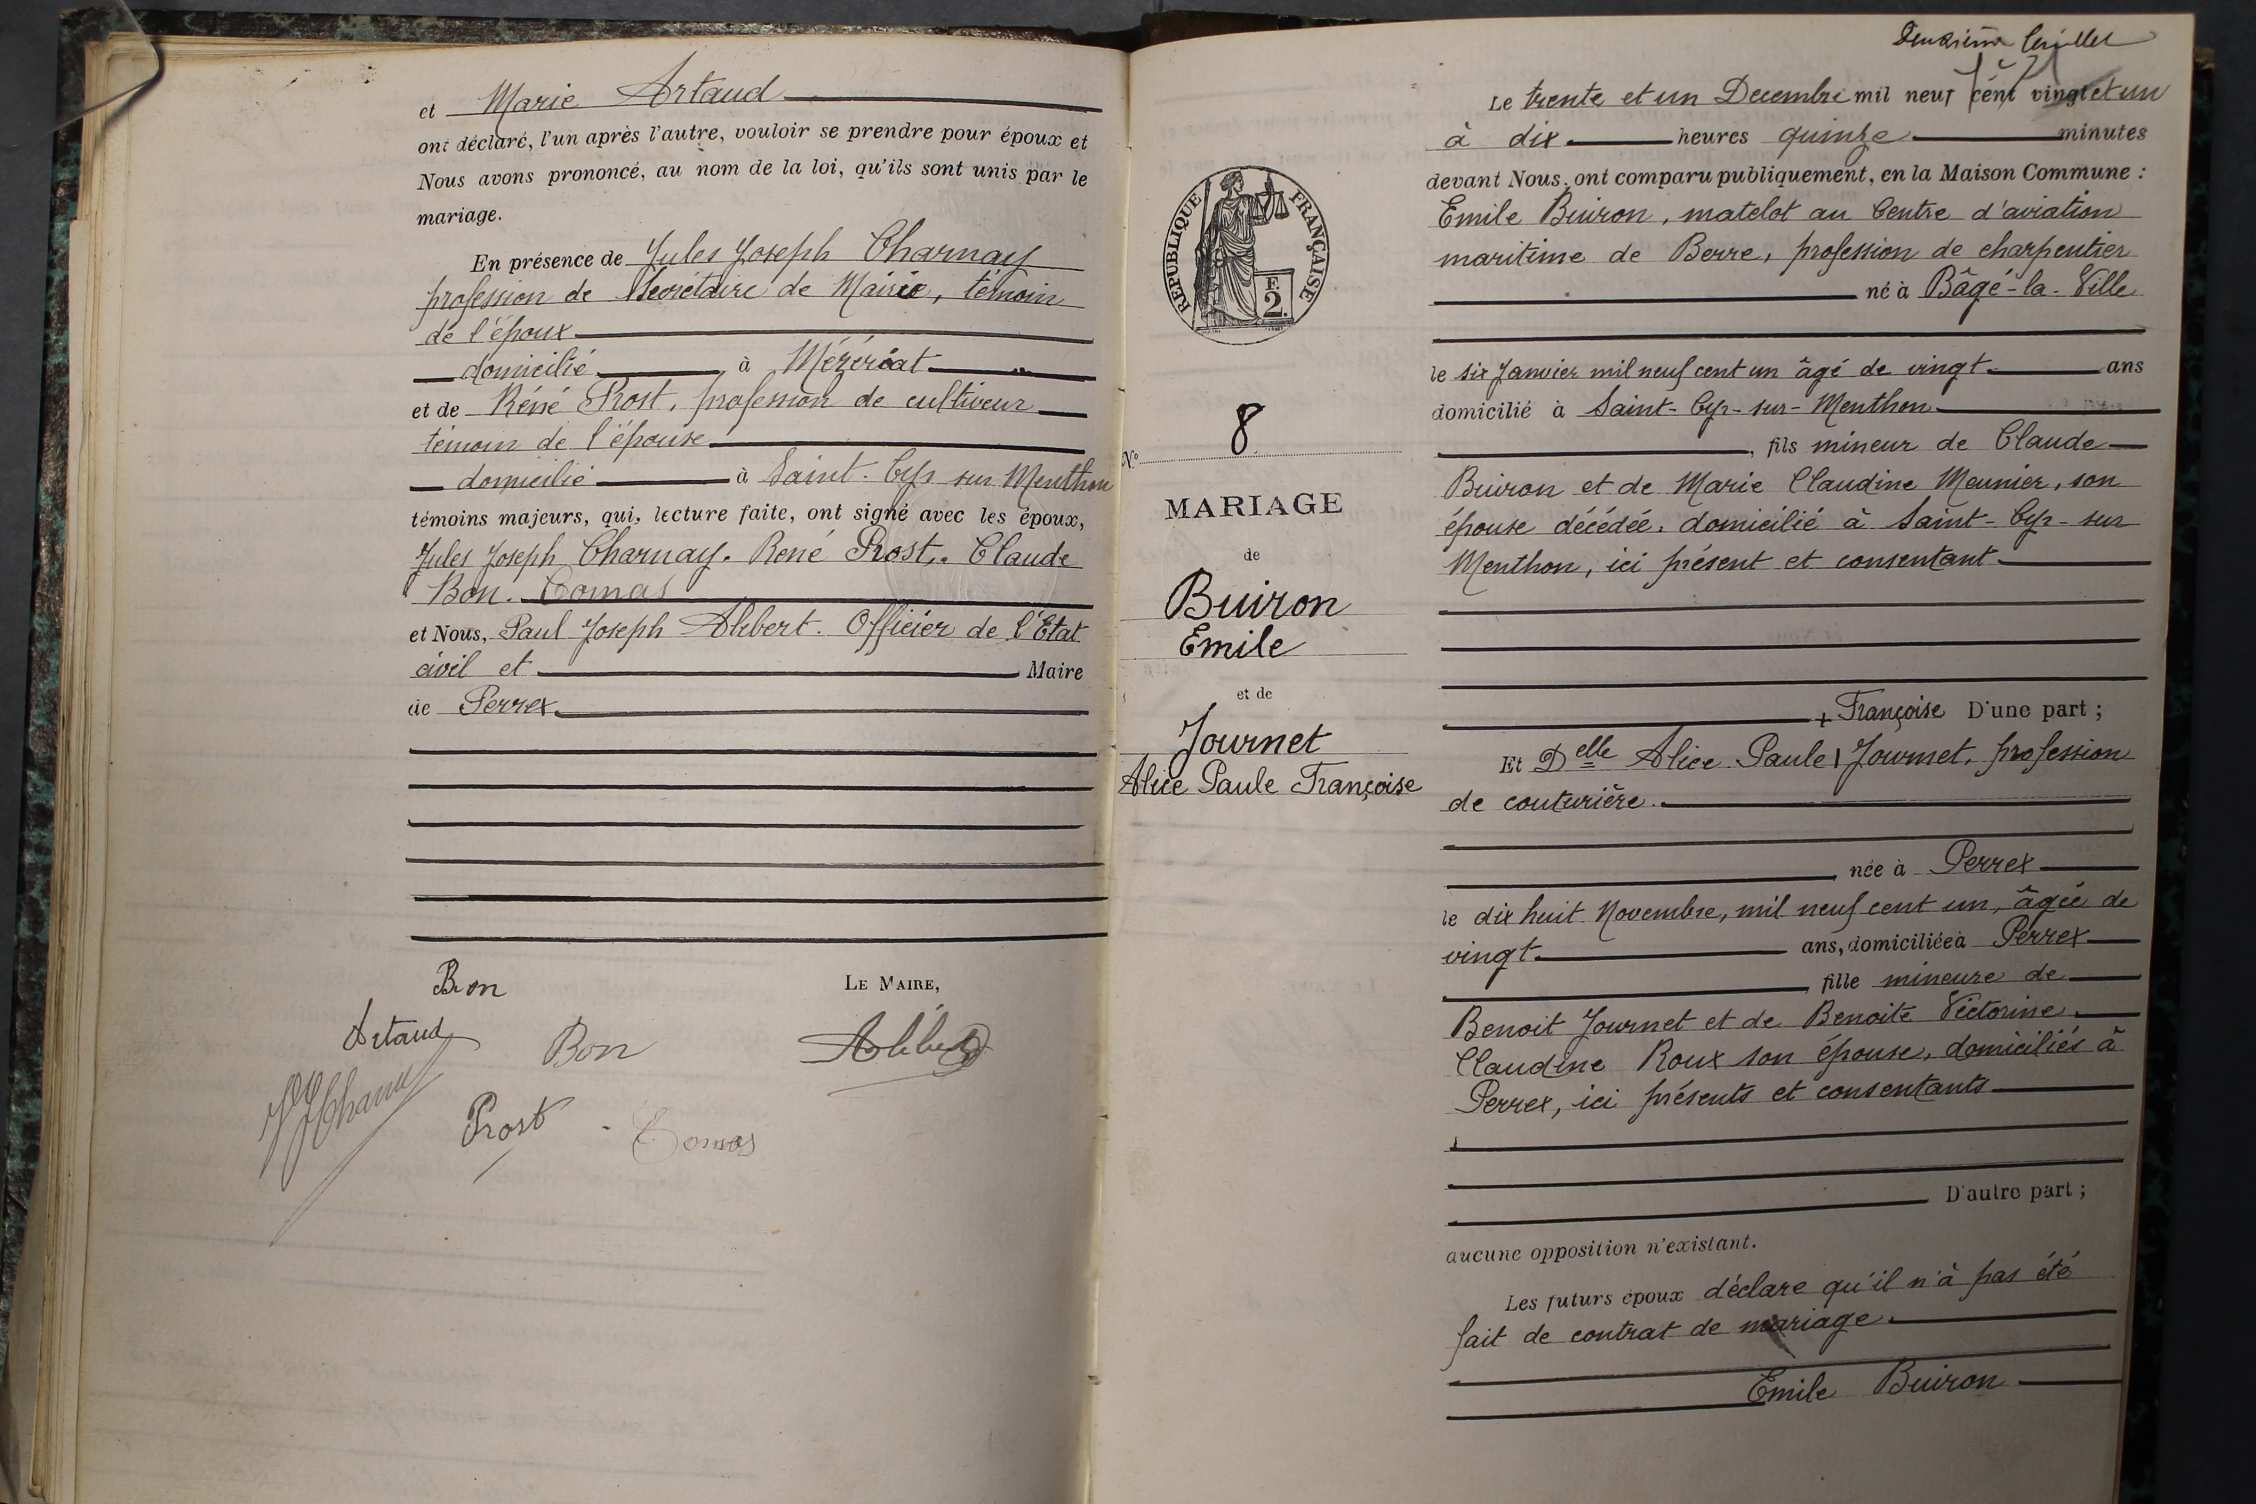 et Marie Artaud
ont déclaré, l'un après l'autre, vouloir se prendre pour époux et
Nous avons prononcé, au nom de la loi, qu'ils sont unis par le
mariage.
En présence de Jules Joseph Charnay
profession de Secrétaire de Mairie, témoin
de l'époux
domicilié à Mézériat
et de Réné Prost, profession de cultiveur
témoin de l'épouse
domicilié à Saint-Cyr sur Menthon
témoins majeurs, qui, lecture faite, ont signé avec les époux,
Jules Joseph Charnay. René Prost. Claude
Bon. Comas
et Nous, Paul Joseph Alibert. Officier de l'État
civil et Maire
de Perrex
Bon
LE MAIRE,
Artaud
Bon
Prost
Comas
Deuxième feuillet
Le trente et un Decembre mil neuf cent vingt et un
à dix heures quinze minutes
devant Nous, ont comparu publiquement, en la Maison Commune :
Emile Buiron, matelot au Centre d'aviation
maritime de Berre, profession de charpentier
né à Bâgé-la-Ville
le six Janvier mil neuf cent un âgé de vingt ans
domicilié à Saint-Cyr-sur-Menthon
, fils mineur de Claude
Buiron et de Marie Claudine Meunier, son
épouse décédée, domicilié à Saint-Cyr-sur
Menthon, ici présent et consentant
+ Françoise D'une part ;
Et Delle Alice Paule Journet, profession
de couturière.
née à Perrex
le dix huit Novembre, mil neuf cent un, âgée de
vingt ans, domiciliée à Perrex
fille mineure de
Benoit Journet et de Benoite Victorine
Claudine Roux son épouse, domiciliés à
Perrex, ici présents et consentants
D'autre part ;
aucune opposition n'existant.
Les futurs époux déclare qu'il n'à pas été
fait de contrat de mariage.
Emile Buiron
RÉPUBLIQUE FRANÇAISE
F.
2.
N° 8
MARIAGE
de
Buiron
Emile
et de
Journet
Alice Paule Françoise